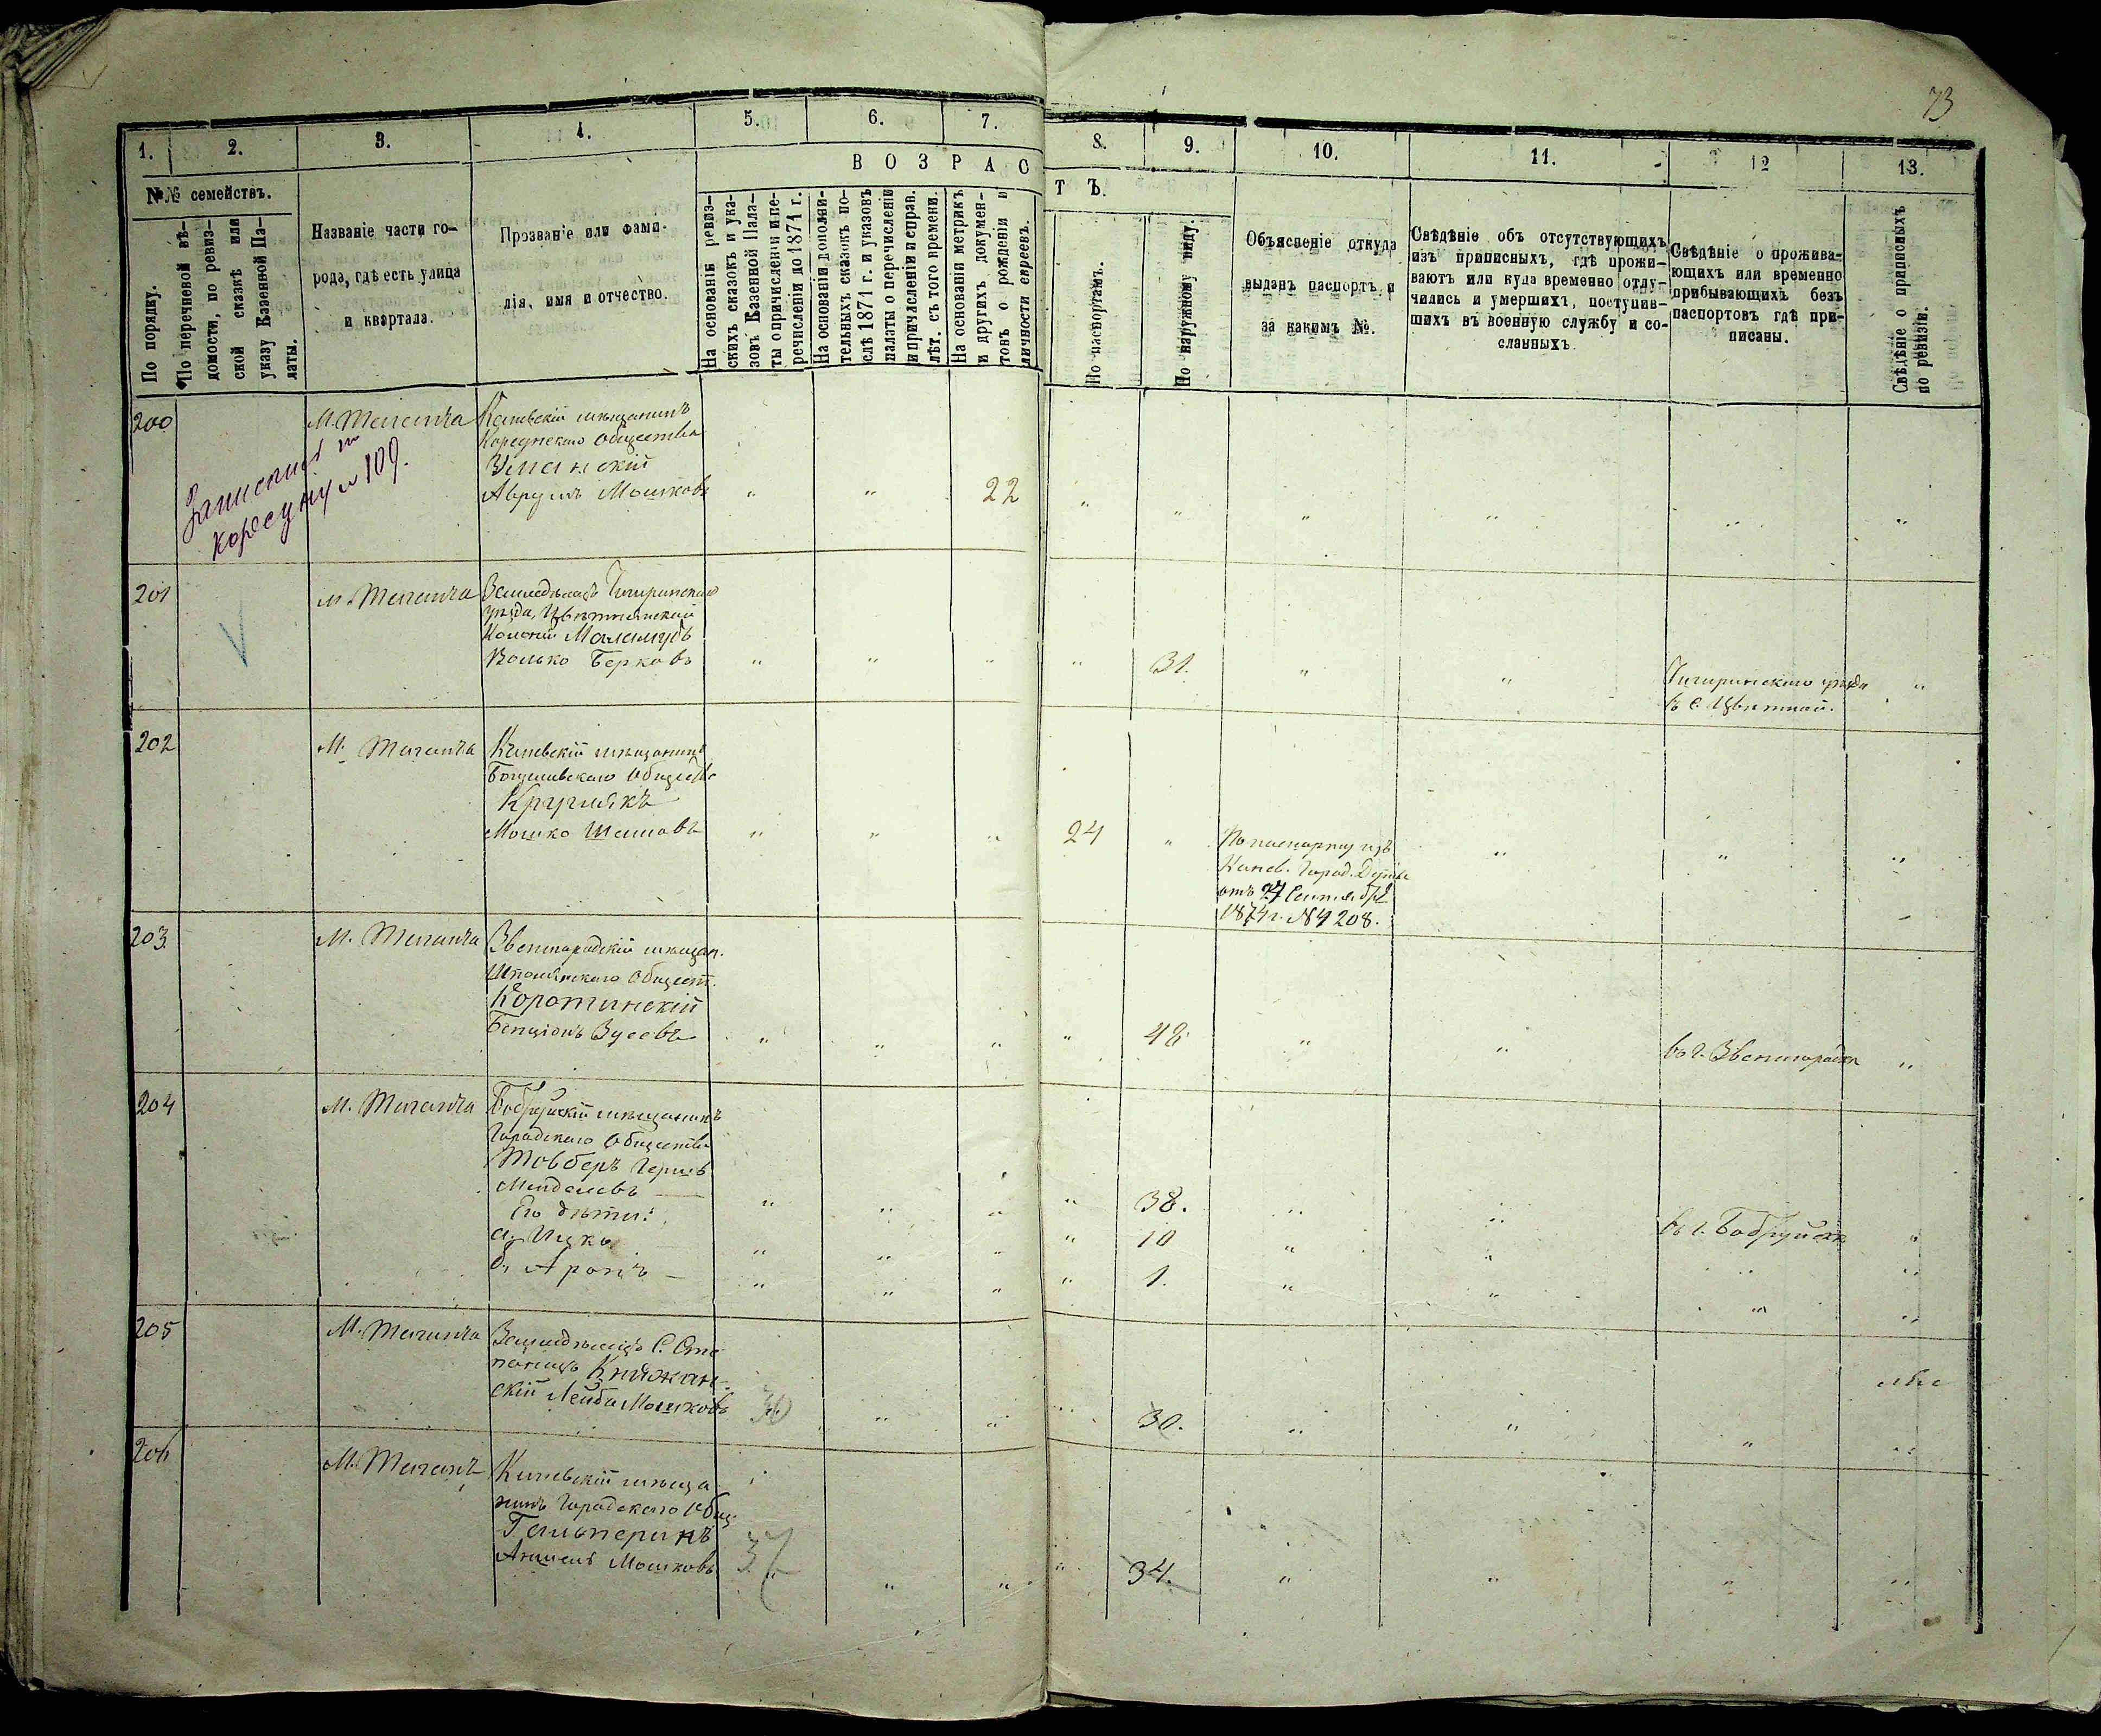 73
1.
2.
3.
4.
5.
6.
7.
8.
9.
10.
11.
12
13.
№№ семействъ.
В О З Р А С Т Ъ.
По порядку.
По перечневой вѣ-
домости, по ревиз-
ской сказкѣ или
указу Казенной Па-
латы.
Названіе части го-
рода, гдѣ есть улица
и квартала.
Прозваніе или фами-
лія, имя и отчество.
На основаніи ревиз-
скихъ сказокъ и ука-
зовъ Казенной Пала-
ты о причисленіи и пе-
речисленіи до 1871 г.
На основаніи дополни-
тельныхъ сказокъ по-
слѣ 1871 г. и указовъ
палаты о перечисленіи
и причисленіи и справ.
лѣт. съ того времени.
На основаніи метрикъ
и другихъ докумен-
товъ о рожденіи и
личности евреевъ.
По паспортамъ.
По наружному виду.
Объясненіе откуда
выданъ паспортъ и
за какимъ №.
Свѣдѣніе объ отсутствующихъ
изъ приписныхъ, гдѣ прожи-
ваютъ или куда временно отлу-
чились и умершихъ, поступив-
шихъ въ военную службу и со-
сланныхъ
Свѣдѣніе о прожива-
ющихъ или временно
прибывающихъ безъ
паспортовъ гдѣ при-
писаны.
Свѣдѣніе о приписныхъ
по ревизіи.
200
М. Таганча
Каневскій мѣщанинъ
Корсунскаго Общества
Уманскій
Аврумъ Мошковъ
22
Записанъ
корсуну № 109.
201
М. Таганча
Земледѣлецъ Чигиринскаго
уѣзда, Цвѣтнянской
Колоніи Маламудъ
Волько Берковъ
31.
Чигиринскаго уѣзда
въ с. Цвѣтной.
202
М. Таганча
Каневскій мѣщанинъ
Богуславскаго Общества
Круглякъ
Мошко
24
По паспорту изъ
Канев. Город. Думы
отъ 27 Сентября
1874 г. № 4208.
203
М. Таганча
Звенигородскій мѣщан.
Шполянскаго Общест.
Коротинскій
Бенціонъ Зусевъ
48
въ г. Звенигородкѣ
204
М. Таганча
Бобруйскій мѣщанинъ
Городскаго Общества
Товберъ Герш
Менделевъ
38.
Его дѣти:
а, Ицко
10
въ г. Бобруйскѣ
б, Аронъ
1.
205
М. Таганча
Земледѣлецъ С. Сте-
панецъ Княжан-
скій Лейба Мошковъ
30
30.
206
М. Таганч
Каневскій мѣща
нинъ Городскаго Общ.
Гальперинъ
Аншель Мошковъ
37
34.